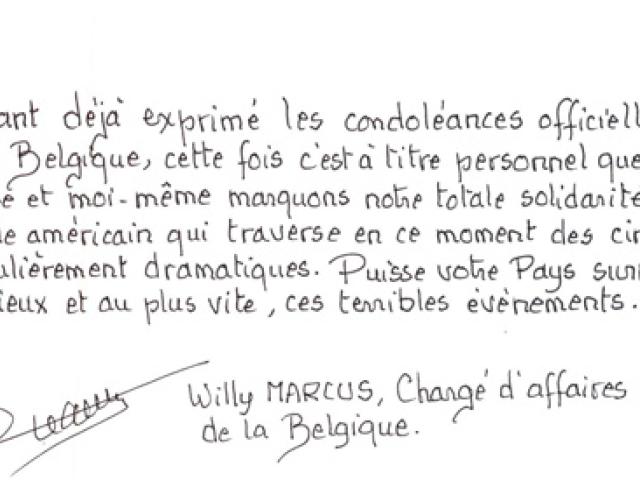 ant déjà exprimé les condoléances officiell
Belgique, cette fois c'est à titre personnel que
é et moi-même marquons notre totale solidarité
e américain qui traverse en ce moment des cir
ulièrement dramatiques. Puisse votre Pays surm
ieux et au plus vite, ces terribles évènements.
Willy MARCUS, Chargé d'affaires
de la Belgique.